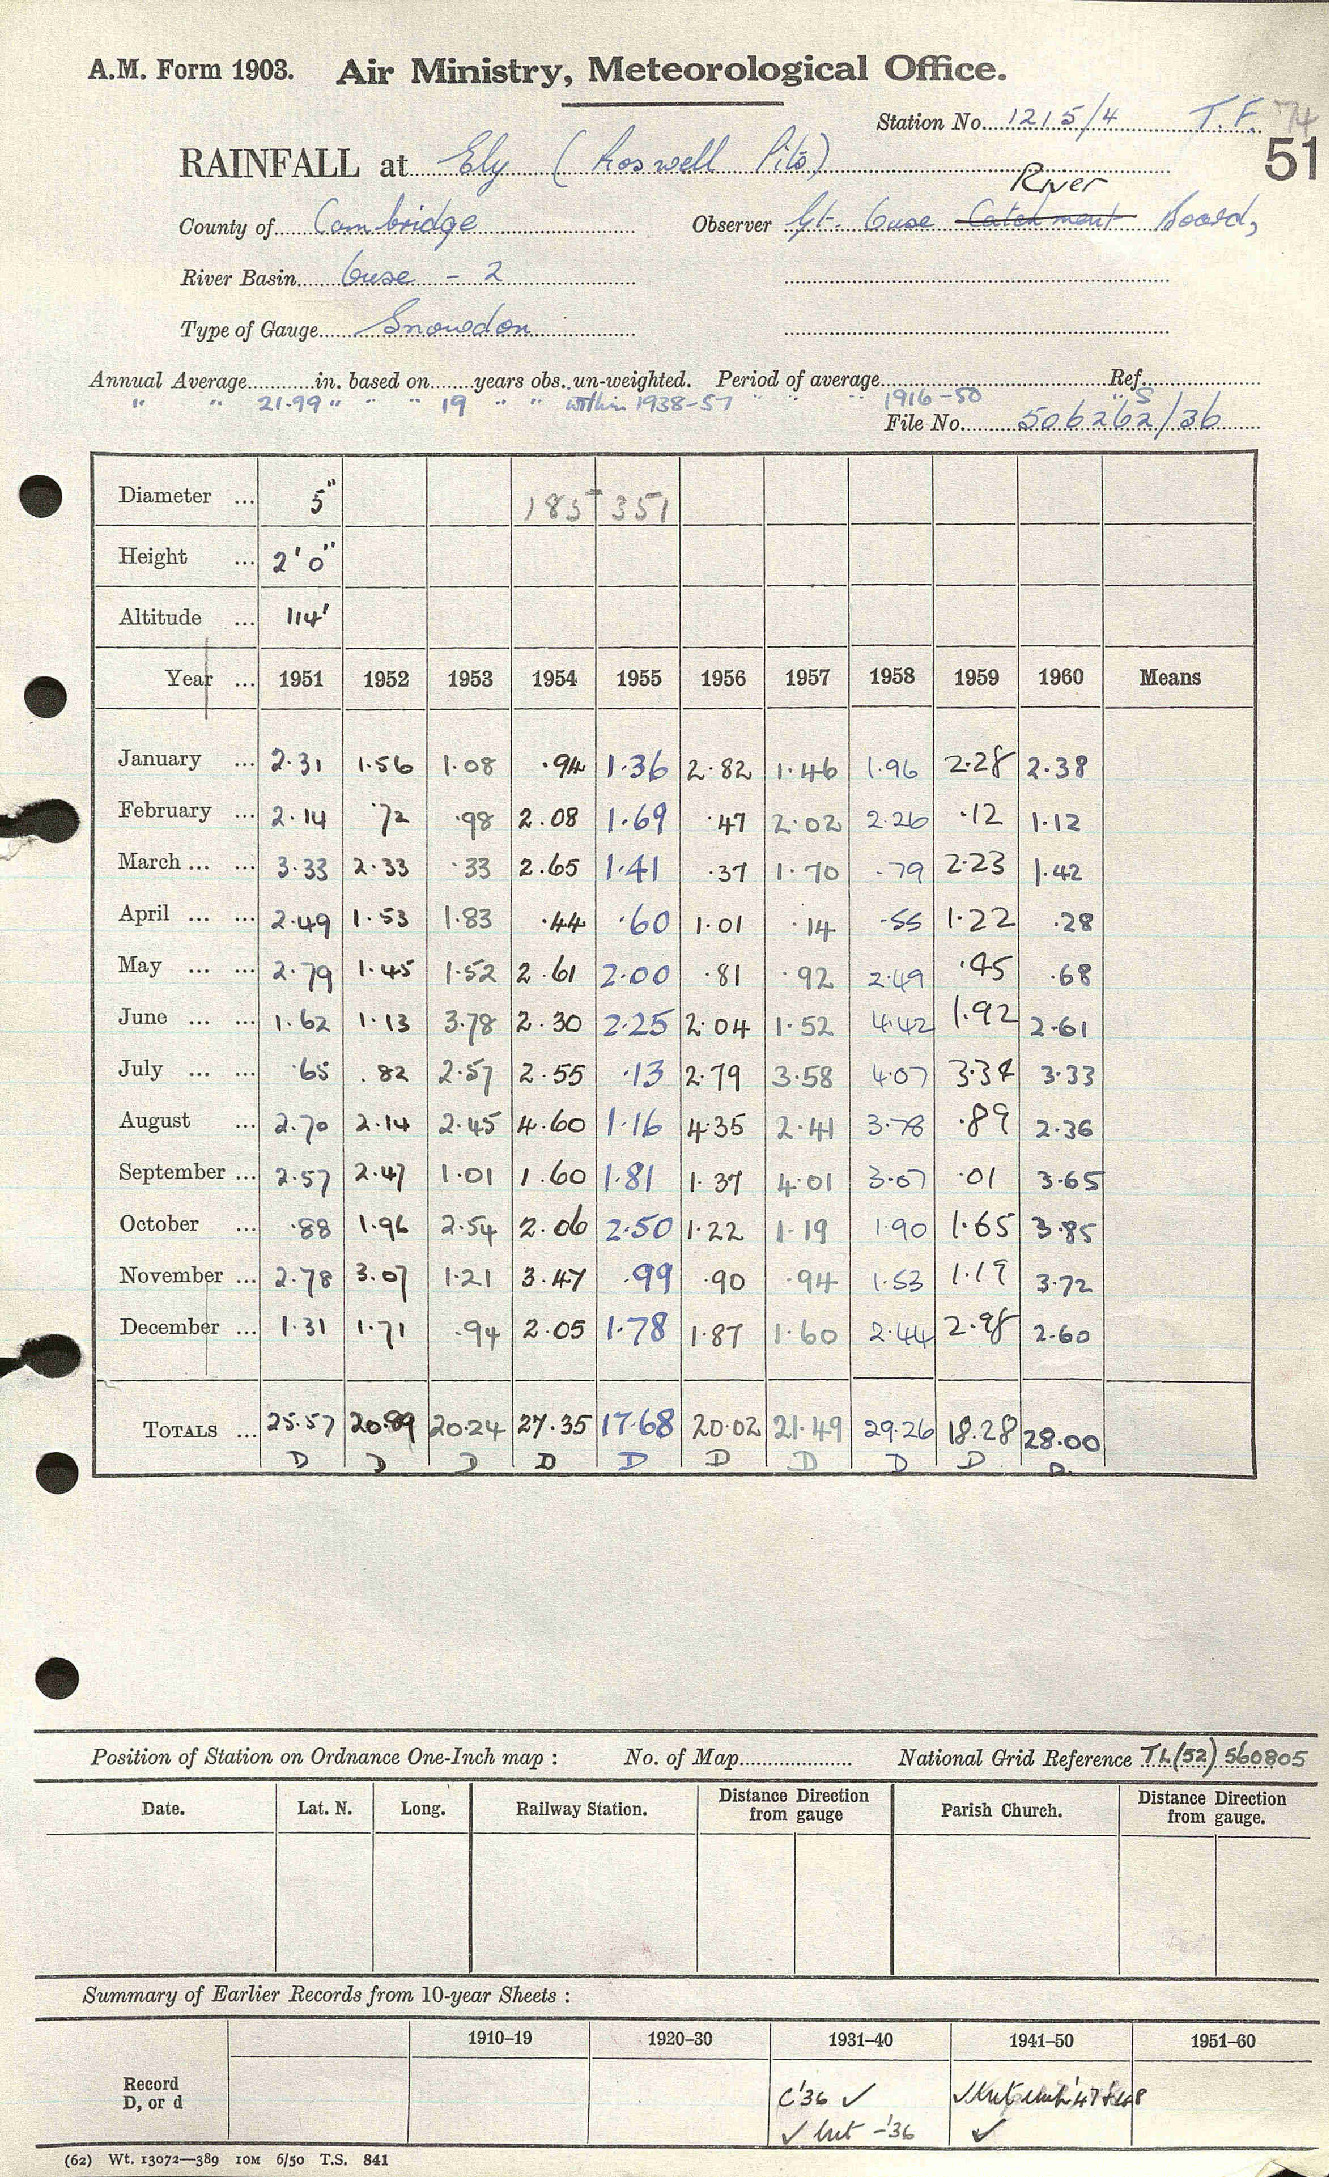 A.M. Form 1903. Air Ministry, Meteorological Office.
Station No. 1215/4 T.F. 74
51
RAINFALL at Ely (Roswell Pits)
River
County of Cambridge Observer Gt. Ouse Catchment Board,
River Basin Ouse - 2
Type of Gauge Snowdon
Annual Average in. based on years obs. un-weighted. Period of average Ref.
" " 21.99 " " " 19 " " within 1938-57 " " " 1916-50 " S
File No. 506262/36
Diameter ... 5" 185+351
Height ... 2'0"
Altitude ... 114'
Year ... 1951 1952 1953 1954 1955 1956 1957 1958 1959 1960 Means
January ... 2.31 1.56 1.08 .94 1.36 2.82 1.46 1.96 2.28 2.38
February ... 2.14 .72 .98 2.08 1.69 .47 2.02 2.26 .12 1.12
March ... ... 3.33 2.33 .33 2.65 1.41 .37 1.70 .79 2.23 1.42
April ... ... 2.49 1.53 1.83 .44 .60 1.01 .14 .55 1.22 .28
May ... ... 2.79 1.45 1.52 2.61 2.00 .81 .92 2.49 .45 .68
June ... ... 1.62 1.13 3.78 2.30 2.25 2.04 1.52 4.42 1.92 2.61
July ... ... .65 .82 2.57 2.55 .13 2.79 3.58 4.07 3.34 3.33
August ... 2.70 2.14 2.45 4.60 1.16 4.35 2.41 3.78 .89 2.36
September ... 2.57 2.47 1.01 1.60 1.81 1.37 4.01 3.07 .01 3.65
October ... .88 1.96 2.54 2.06 2.50 1.22 1.19 1.90 1.65 3.85
November ... 2.78 3.07 1.21 3.47 .99 .90 .94 1.53 1.19 3.72
December ... 1.31 1.71 .94 2.05 1.78 1.87 1.60 2.44 2.98 2.60
TOTALS ... 25.57 20.89 20.24 27.35 17.68 20.02 21.49 29.26 18.28 28.00
D D D D D D D D D D.
Position of Station on Ordnance One-Inch map : No. of Map National Grid Reference TL(52) 560805
Date. Lat. N. Long. Railway Station. Distance Direction from gauge Parish Church. Distance Direction from gauge.
Summary of Earlier Records from 10-year Sheets :
1910–19 1920–30 1931–40 1941–50 1951–60
Record
D, or d
C'36 ✓
✓ but -'36 ✓
(62) Wt. 13072—389 10M 6/50 T.S. 841